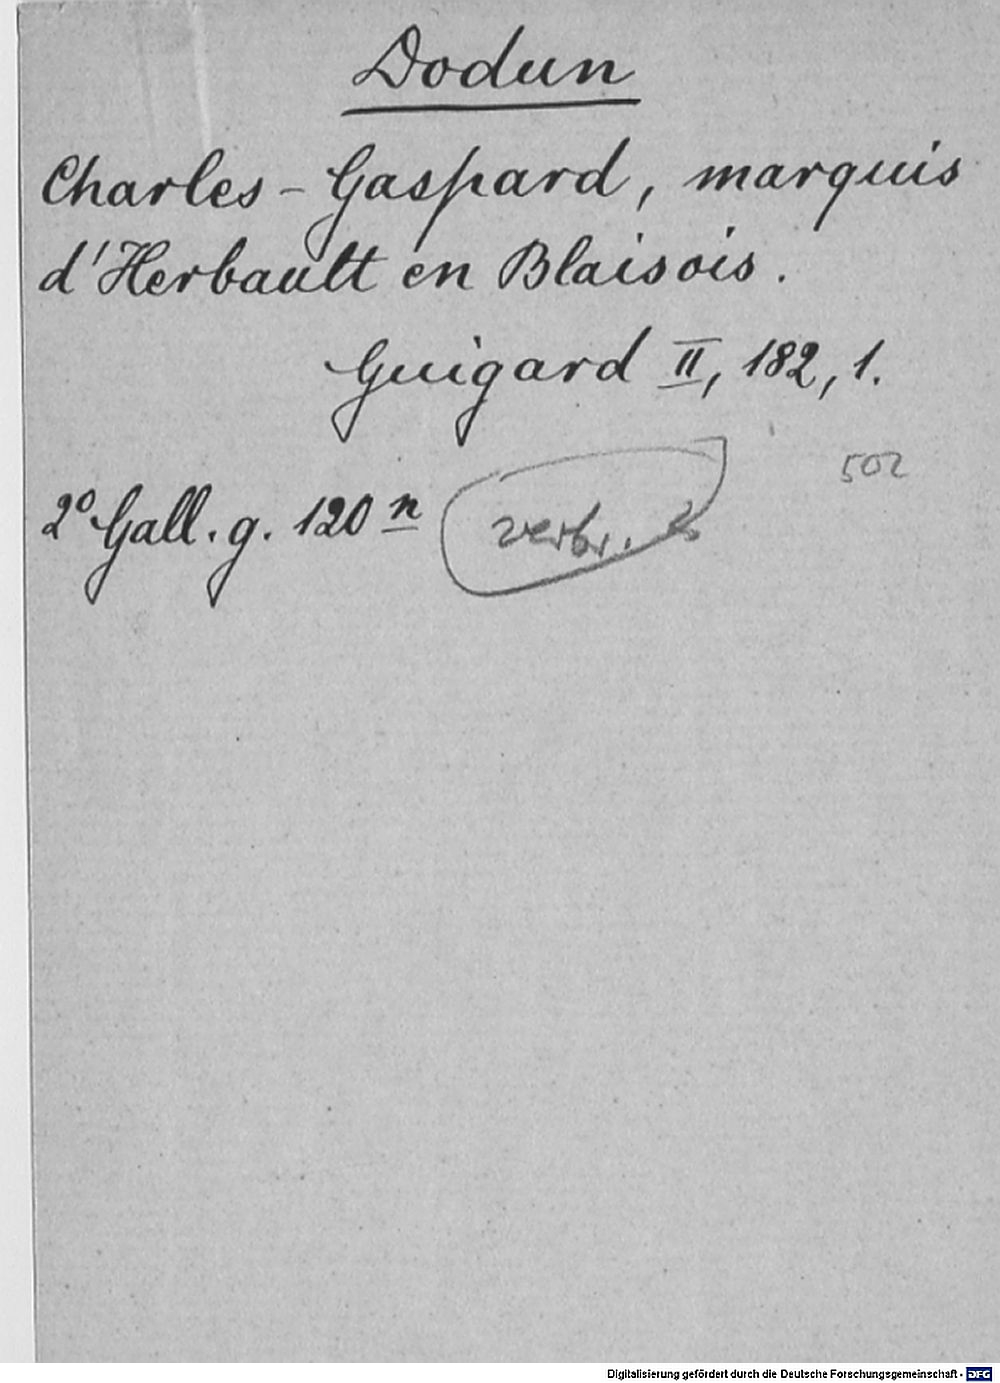 Dodun
Charles-Gaspard, marquis
d'Herbault en Blaisois.
Guigard II, 182, 1.
502
2° Gall. g. 120 n verbr.
Digitalisierung gefördert durch die Deutsche Forschungsgemeinschaft - DFG